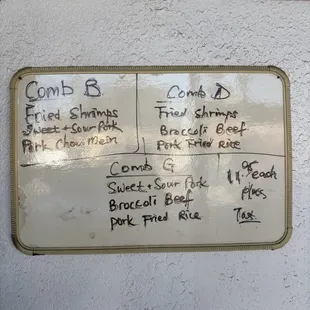 Comb B
Fried Shrimps
Sweet + Sour Pork
Pork Chow Mein
Comb D
Fried Shrimps
Broccoli Beef
Pork Fried Rice
Comb G
Sweet + Sour Pork
Broccoli Beef
pork Fried Rice
each
plus
Tax